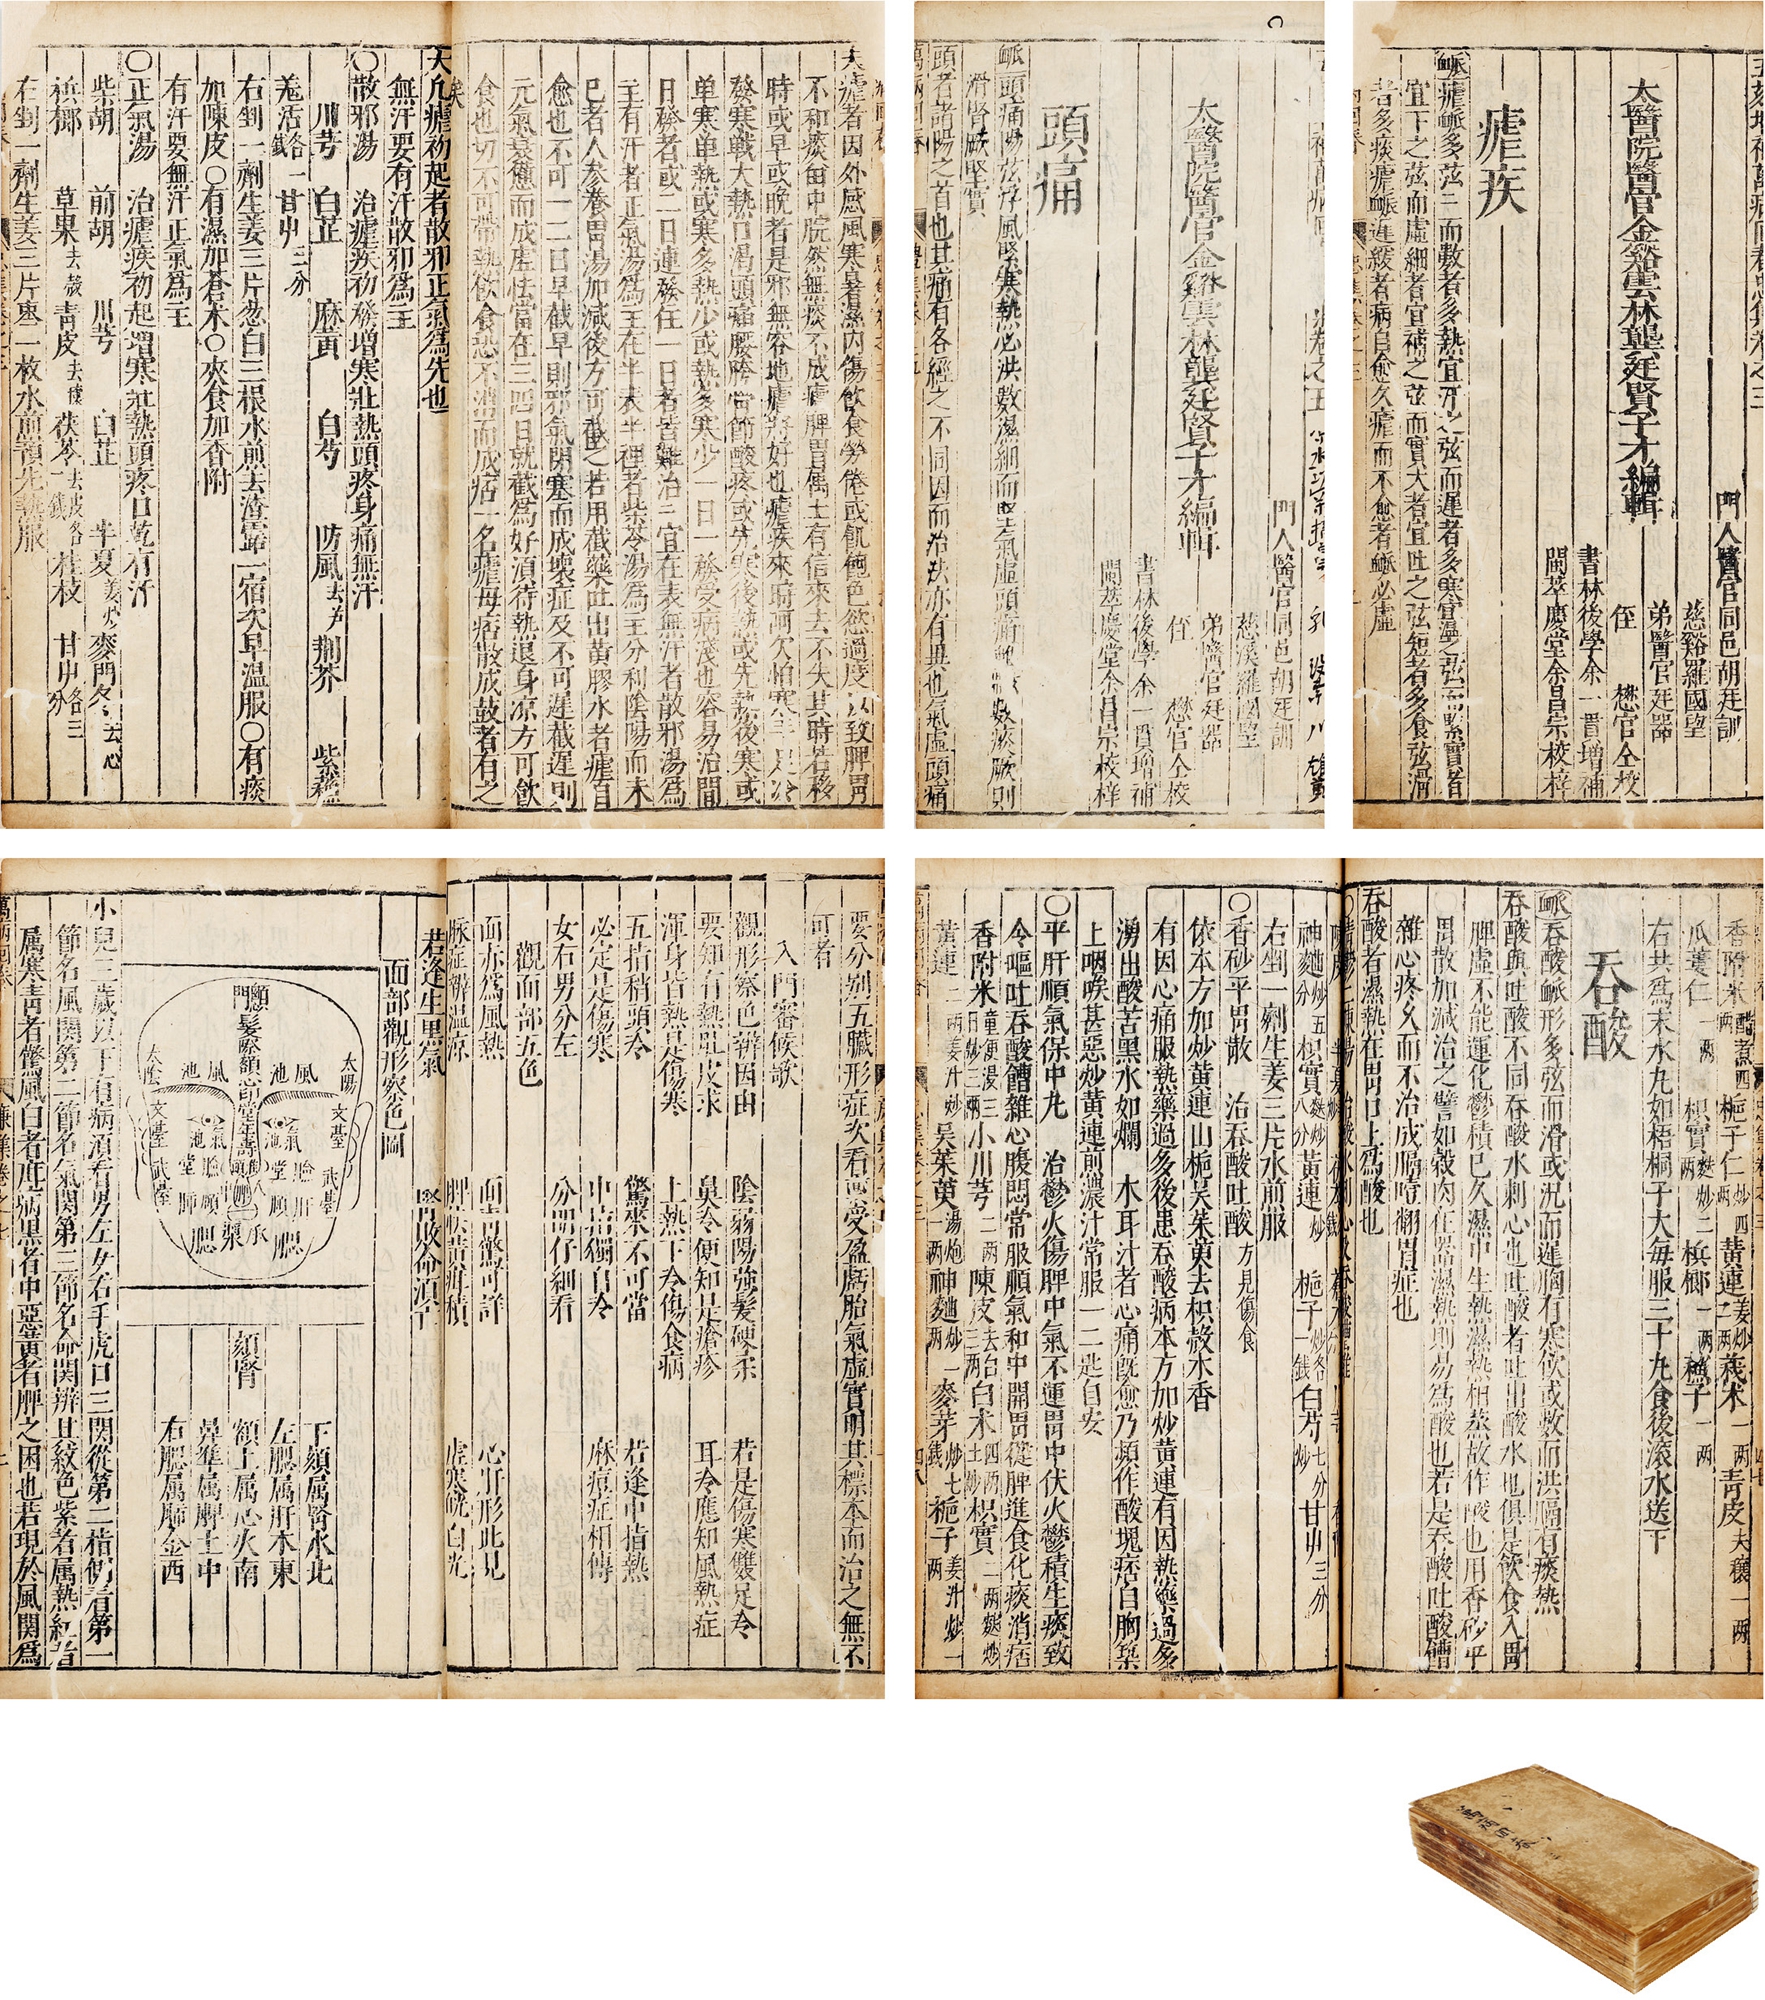 太醫院醫官金谿雲林龔廷賢子才編輯
門人醫官同邑胡廷訓
慈谿羅國望
弟醫官廷器
侄 懋官仝校
書林後學余一貫增補
閩萃慶堂余昌宗校梓
瘧疾
脈 瘧脈多弦弦而數者多熱宜汗之弦而遲者多寒宜溫之弦而緊實者
宜下之弦而虛細者宜補之弦而實大者宜吐之弦短者多食弦滑
者多痰瘧脈遲緩者病自愈久瘧而不愈者脈必虛
太醫院醫官金谿雲林龔廷賢子才編輯
門人醫官同邑胡廷訓
慈溪羅國望
弟醫官廷器
侄 懋官仝校
書林後學余一貫增補
閩萃慶堂余昌宗校梓
頭痛
脈 頭痛陽弦浮風緊寒熱必洪數濕細而堅氣虛頭痛雖弦數痰厥則
滑腎厥堅實
頭者諸陽之首也其痛有各經之不同因而治法亦有異也氣虛頭痛
夫瘧者因外感風寒暑濕內傷飲食勞倦或飢飽色慾過度以致脾胃
不和痰留中脘然無痰不成瘧脾胃属土有信來去不失其時若移
時或早或晚者是邪無容地瘧將好也瘧疾來時呵欠怕寒手足冷
發寒戰大熱口渴頭痛腰胯骨節酸疼或先寒後熱或先熱後寒或
单寒单熱或寒多熱少或熱多寒少一日一發受病淺也容易治間
日發者或二日連發住一日者皆難治宜在表無汗者散邪湯爲
主有汗者正氣湯爲主在半表半裡者柴苓湯爲主分利陰陽而未
已者人參養胃湯加減後方可截之若用截藥吐出黃膠水者瘧自
愈也不可一二日早截早則邪氣閉塞而成壞症及不可遲截遲則
元氣衰憊而成虛怯當在三四日就截爲好湏待熱退身涼方可飲
食也切不可帶熱飲食恐不消而成痞一名瘧母痞散成鼓者有之
矣
大凡瘧初起者散邪正氣爲先也
無汗要有汗散邪爲主
有汗要無汗正氣爲主
散邪湯 治瘧疾初發增寒壯熱頭疼身痛無汗
川芎 白芷 麻黃 白芍 防風去芦 荆芥 紫蘇
羌活各一錢 甘艸三分
右剉一劑生姜三片葱白三根水煎去渣露一宿次早温服〇有痰
加陳皮〇有濕加蒼朮〇夾食加香附
〇正氣湯 治瘧疾初起增寒壯熱頭疼口乾有汗
柴胡 前胡 川芎 白芷 半夏姜炒 麥門冬去心
檳榔 草果去殼 青皮去穰 茯苓去皮各一錢 桂枝 甘艸各三分
右剉一劑生姜三片棗一枚水煎預先熱服
香附米 醋煮四两 梔子仁炒四两 黃連姜炒二两 莪朮一两 青皮去穰一两
瓜蔞仁一两 枳實麩炒二两 檳榔一两 一两
右共爲末水丸如梧桐子大每服三十九食後滾水送下
吞酸
脈 吞酸脈形多弦而滑或沉而遲胸有寒飲或數而洪膈有痰熱
吞酸與吐酸不同吞酸水刺心也吐酸者吐出酸水也俱是飲食入胃
脾虛不能運化鬱積已久濕中生熱濕熱相蒸故作酸也用香砂平
胃散加減治之譬如穀肉在器濕熱則易爲酸也若是吞酸吐酸嘈
雜心疼久而不治成膈噎翻胃症也
吞酸者濕熱在胃口上爲酸也
神麯炒五分 枳實麩炒八分 黃連炒 梔子炒各一錢 白芍炒七分 甘艸三分
右剉一劑生姜三片水煎服
〇香砂平胃散 治吞酸吐酸方見傷食
依本方加炒黃連山梔吴茱萸去枳殼木香
有因心痛服熱藥過多後患吞酸病本方加炒黃連有因熱藥過多
湧出酸苦黑水如爛 木耳汁者心痛既愈乃頻作酸塊痞自胸築
上咽喉甚惡炒黃連煎濃汁常服一二匙自安
〇平肝順氣保中丸 治鬱火傷脾中氣不運胃中伏火鬱積生痰致
令嘔吐吞酸嘈雜心腹悶常服順氣和中開胃徤脾進食化痰消痞
香附米童便浸三日炒三两 小川芎二两 陳皮去白三两 白朮四两土炒 枳實一两麩炒
黃連二两姜汁炒 吴茱萸湯炮一两 神麯炒一两 麥芽炒七錢 梔子姜汁炒一两
要分别五臟形症次看禀受盈虧胎氣虛實明其標本而治之無不
可者
入門審候歌
觀形察色辨因由 陰弱陽強髮硬柔 若是傷寒雙足冷
要知有熱肌皮求 鼻冷便知是瘡疹 耳冷應知風熱症
渾身皆熱是傷寒 上熱下冷傷食病
五指稍頭冷 驚來不可當 若逢中指熱
必定是傷寒 中指獨自冷 麻痘症相傳
女右男分左 分明仔細看
觀面部五色
面赤爲風熱 面青驚可詳 心肝形此見
脉症辨温凉 脾怯黃疳積 虛寒㿠白光
若逢生黑氣 腎敗命湏亡
面部觀形察色圖
顖門
髮際
額心
印堂
年壽
太陽
太陰
風池
風池
文臺
文臺
武臺
武臺
氣池
氣池
臉堂
臉堂
肝
肺
頤
頤
腮
腮
承漿
頦腎
下頦属腎水北
左腮属肝木東
額上属心火南
鼻準属脾土中
右腮属肺金西
小兒三歲以下有病湏看男左女右手虎口三関從第二指側看第一
節名風関第二節名氣関第三節名命関辨其紋色紫者属熱紅者
属寒青者驚風白者疳病黑者中惡黃者脾之困也若現於風関爲